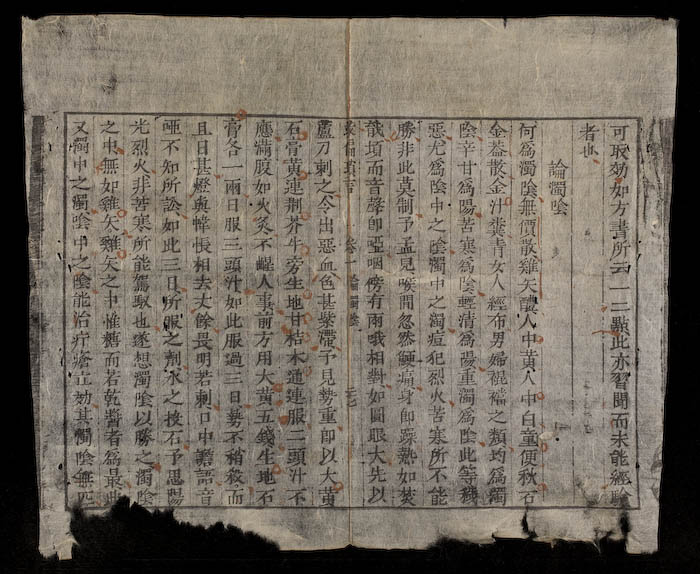 可取効如方書所云一二點此亦習聞而未能經驗
者也
論濁陰
何為濁陰無價散雞矢醴人中黃人中白童便秋石
金益散金汁糞青女人經布男婦裩襠之類均為濁
陰辛甘為陽苦寒為陰輕清為陽重濁為陰此等穢
惡尤為陰中之陰濁中之濁痘犯烈火苦寒所不能
勝非此莫制予孟兒喉間忽然腫痛身即躁熱如焚
戠項而音聲即啞咽傍有兩蛾相對如圓眼大先以
瑣言 卷一 論濁陰
蘆刀刺之令出惡血色甚紫滯予見勢重即以大黃
石膏黃連荆芥牛旁生地甘桔木通連服二頭汁不
應滿腹如火炙不醒人事前方用大黃五錢生地石
膏各一兩日服三頭汁如此服過三日勢不稍殺而
且日甚燈與幃悵相去丈餘畏明若刺口中譫語音
啞不知所訟如此三日所服之劑水之投石予思陽
光烈火非苦寒所能駕馭也遂想濁陰以勝之濁陰
之中無如雞矢雞矢之中惟糖而若乾醬者為最此
又濁中之濁陰中之陰能治疔瘡立効其濁陰無匹